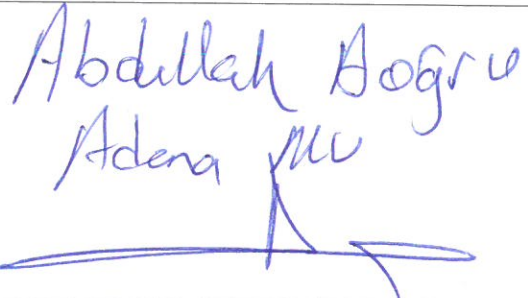 Abdullah Doğru
Adana MV